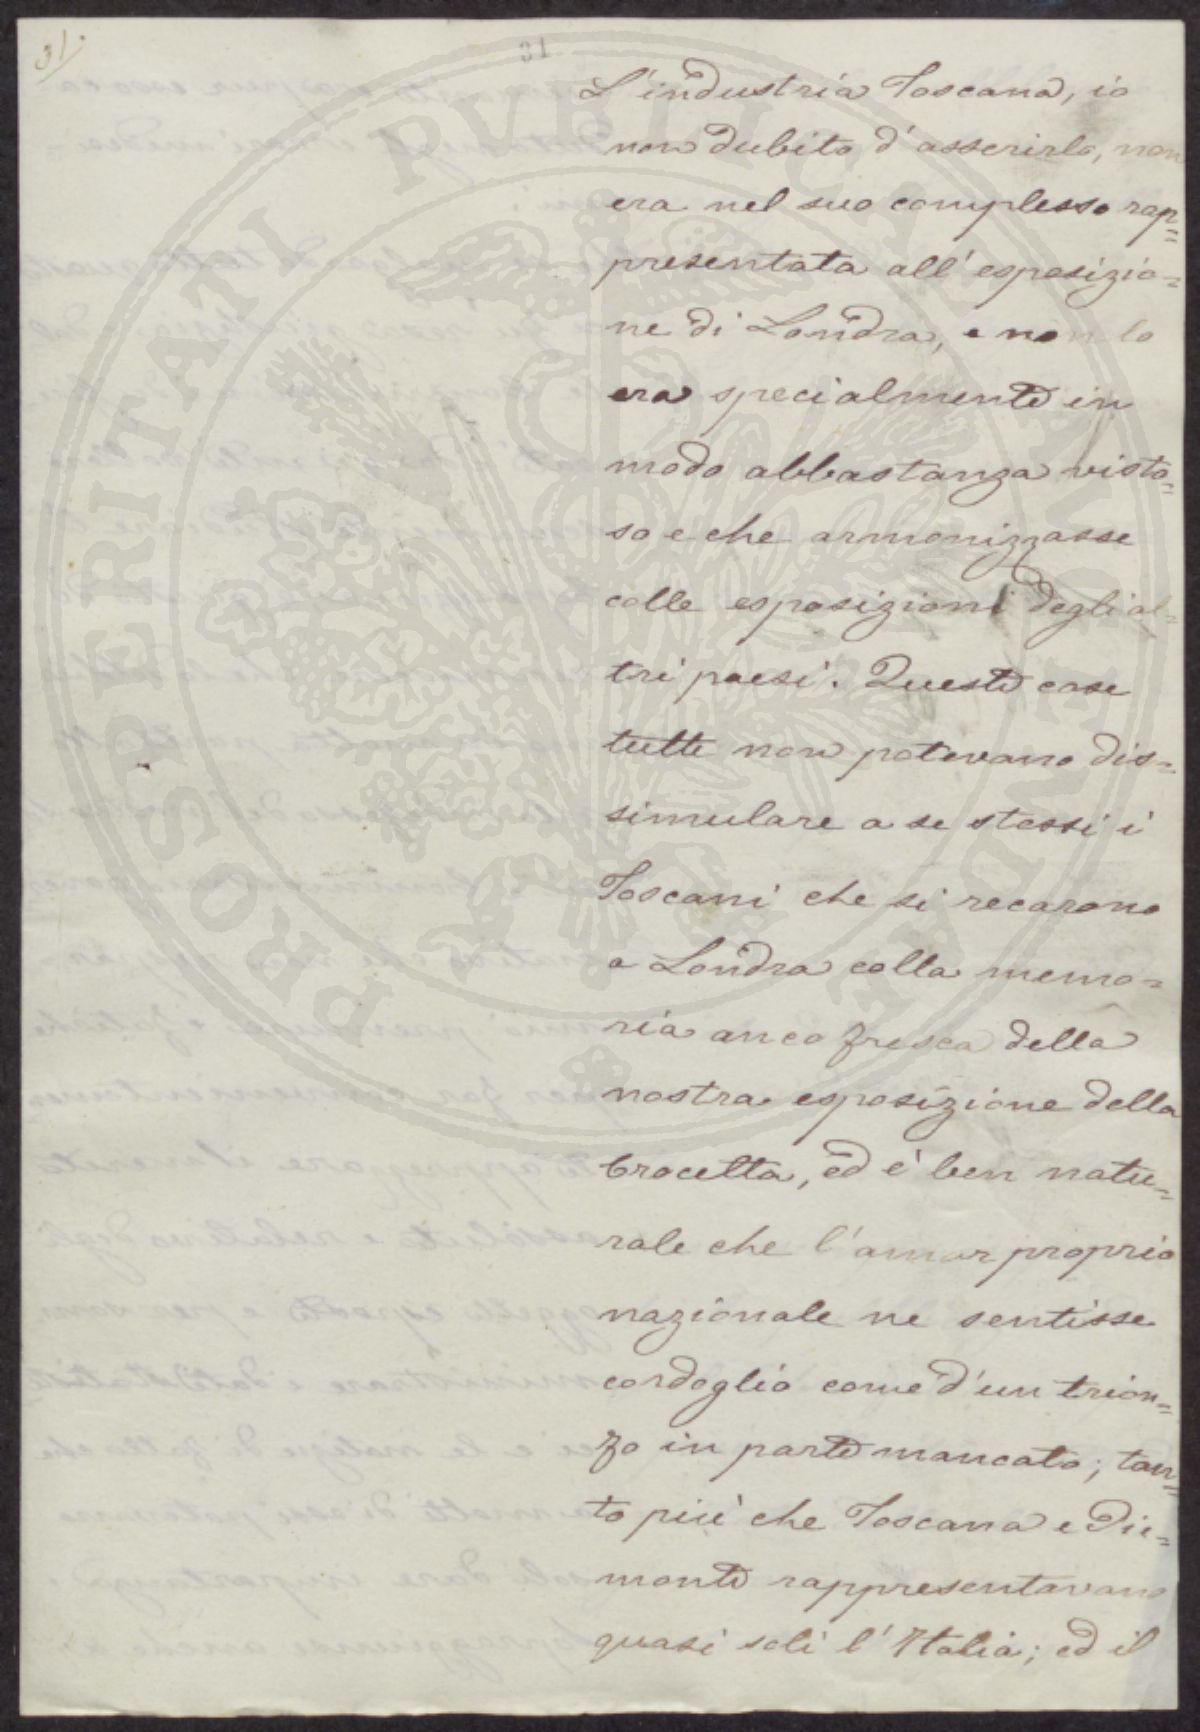 31.
31
L'industria Toscana, io
non dubito d'asserirlo, non
era nel suo complesso rap=
presentata all'esposizio=
ne di Londra, e non lo
era specialmente in
modo abbastanza visto=
so e che armonizzasse
colle esposizioni degli al=
tri paesi. Queste cose
tutte non potevano dis=
simulare a se stessi i
Toscani che si recarono
a Londra colla memo=
ria anco fresca della
nostra esposizione della
Crocetta, ed è ben natu=
rale che l'amor proprio
nazionale ne sentisse
cordoglio come d'un trion=
fo in parte mancato; tan=
to più che Toscana e Pie=
monte rappresentavano
quasi soli l'Italia; ed il
PROSPERITATI PVBLICAE AVGENDAE